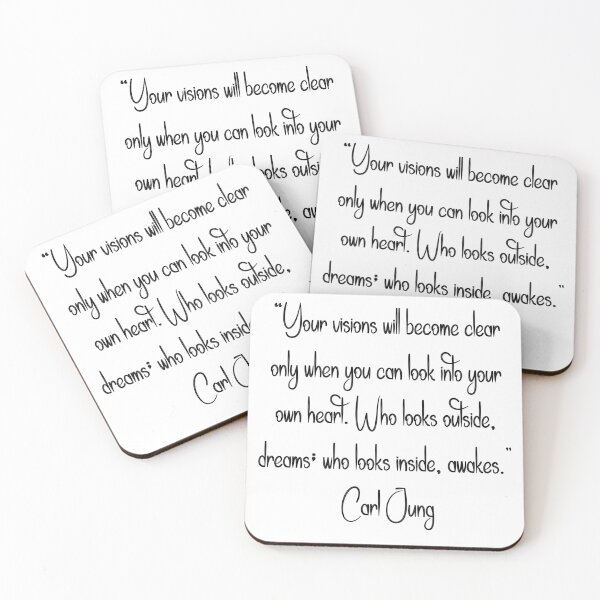 “Your visions will become clear
only when you can look into your
own heart.
“Your visions will become clear
only when you can look into your
own heart. Who looks outside,
dreams; who looks inside, awakes.”
“Your visions will become clear
only when you can look into your
own heart. Who looks outside,
dreams; who looks inside
Carl
“Your visions will become clear
only when you can look into your
own heart. Who looks outside,
dreams; who looks inside, awakes.”
Carl Jung